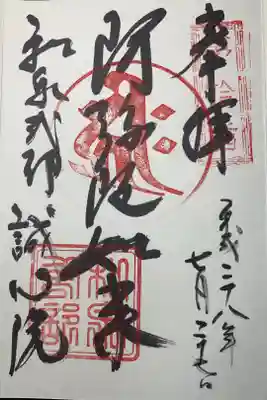 奉拝
平成二十八年
七月二十七日
阿弥陀如来
和泉式部
誠心院
和泉
式部